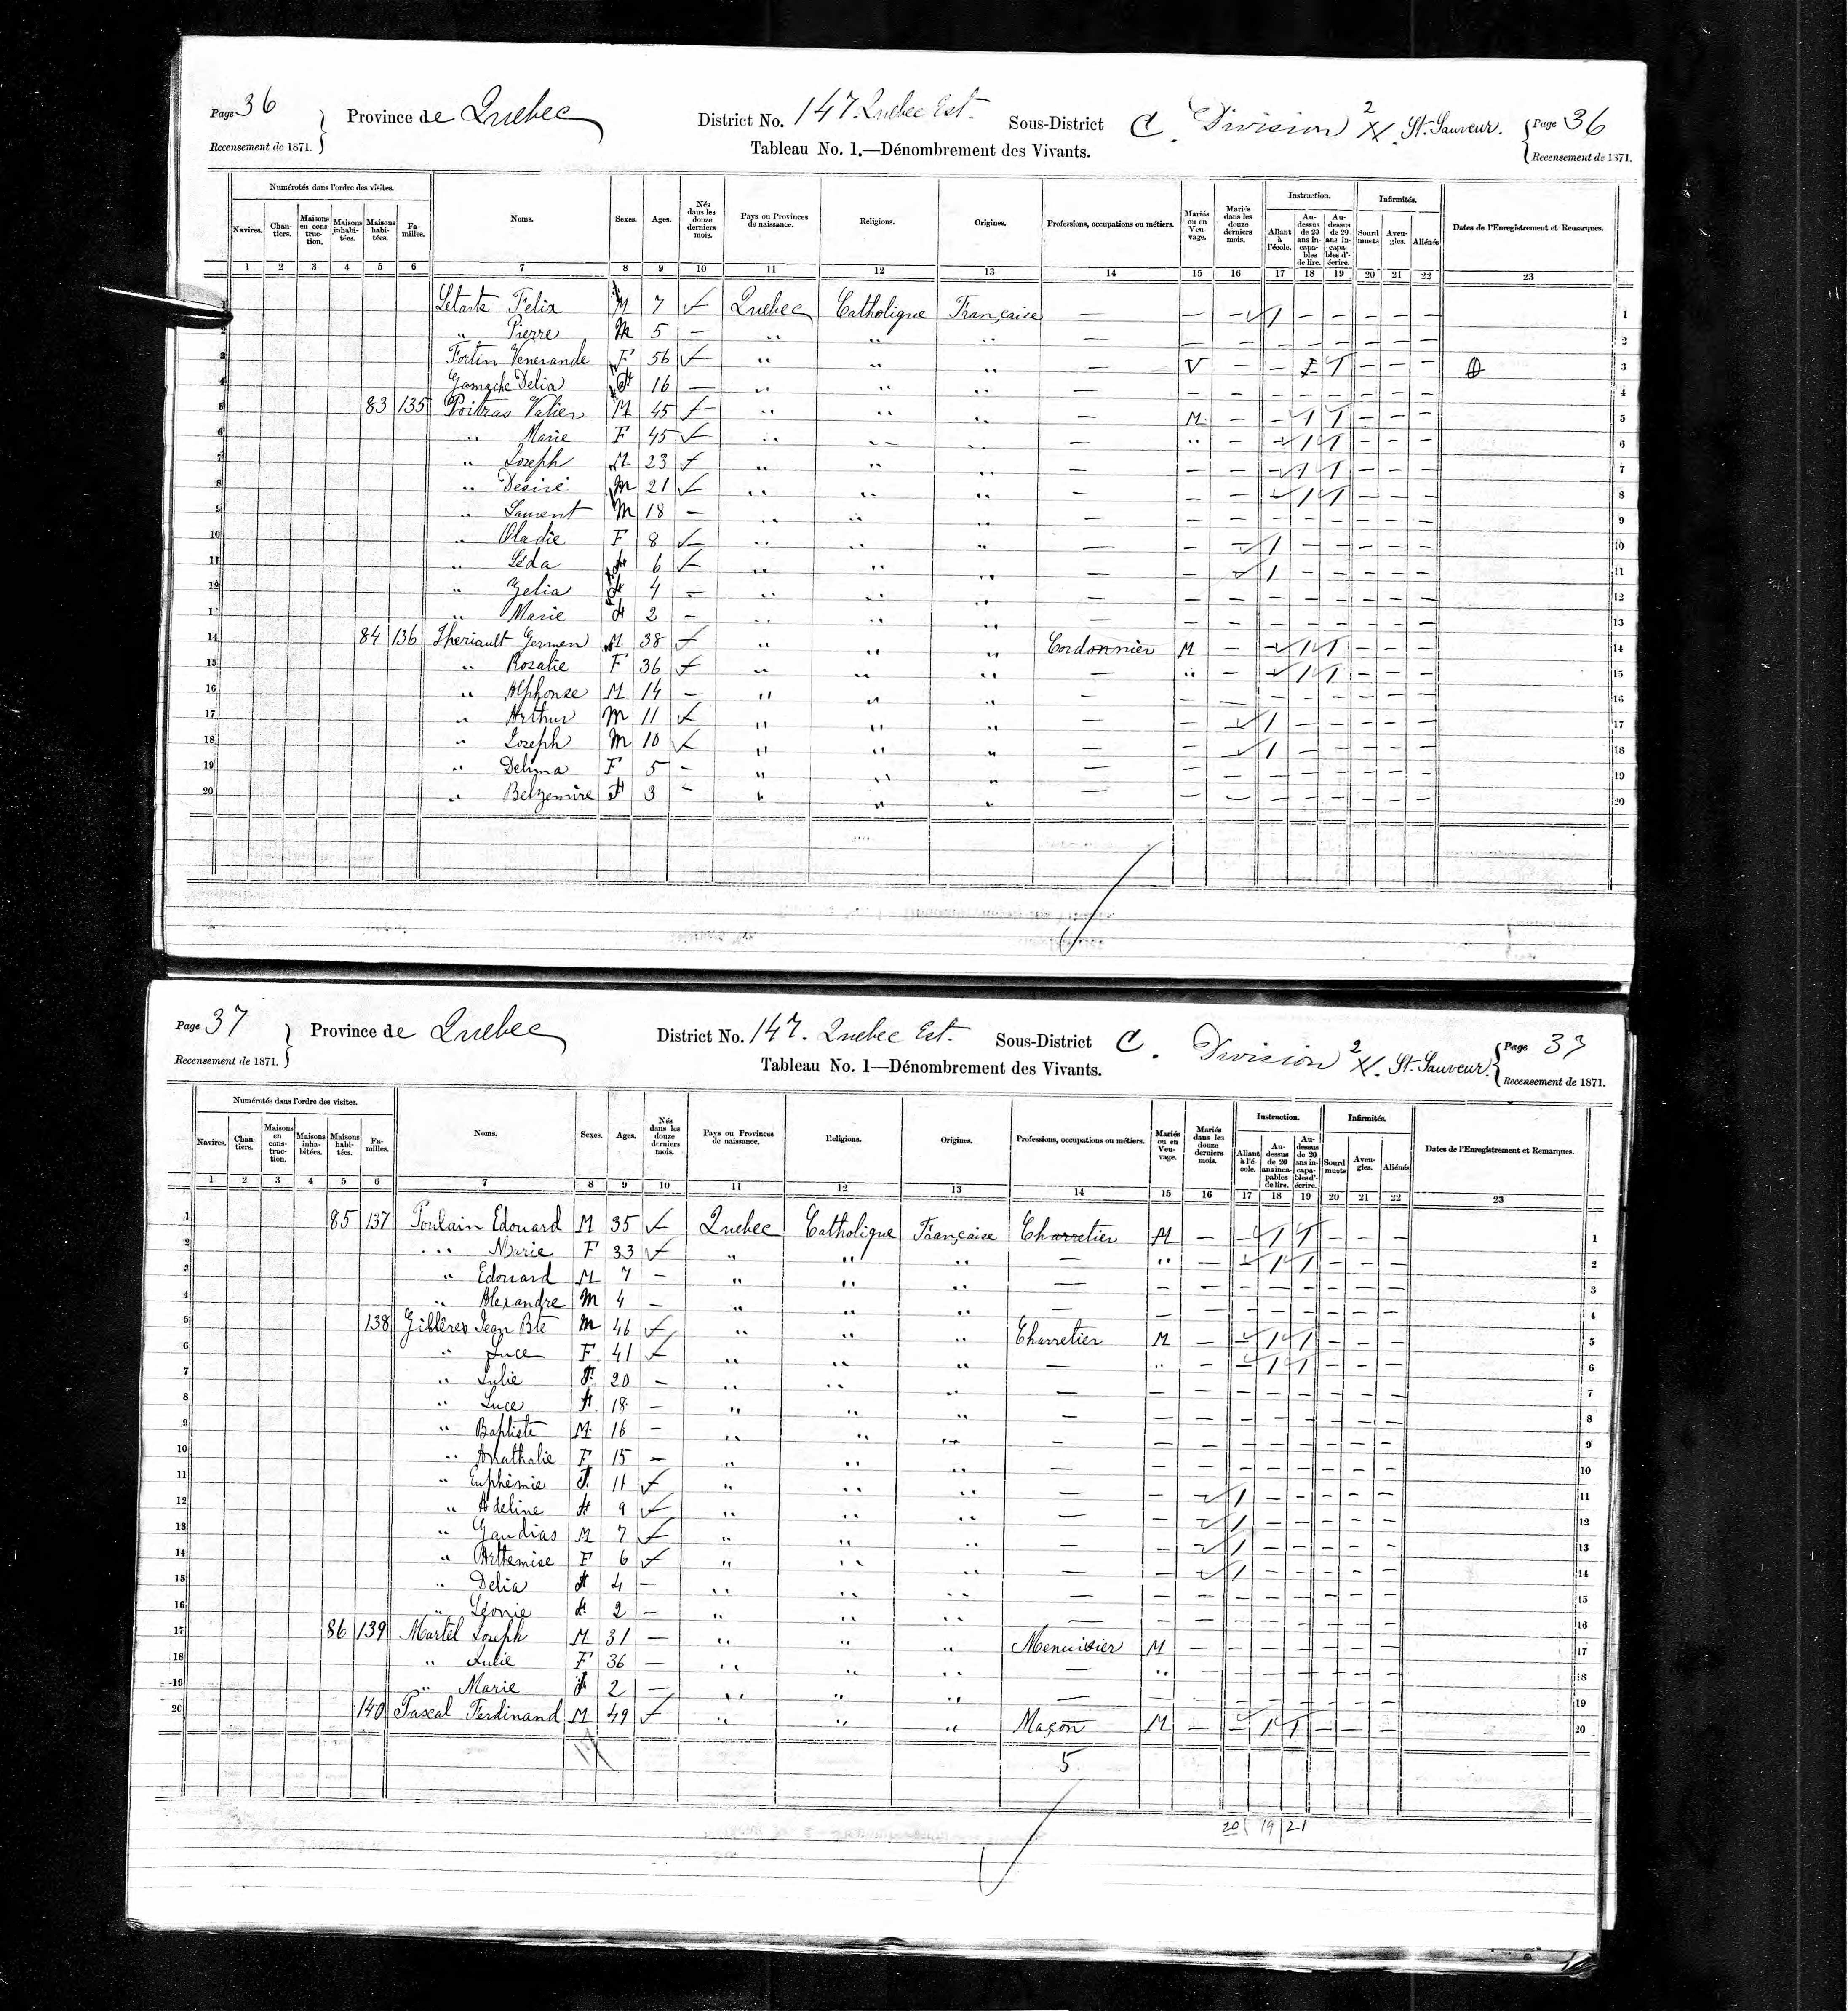 Page 36 Province de Quebec District No. 147 Quebec Est. Sous-District C. Division 2 X. St. Sauveur. Page 36
Recensement de 1871. Tableau No. 1.—Dénombrement des Vivants. Recensement de 1871.
Numérotés dans l'ordre des visites. Instruction. Infirmités.
Navires. Chantiers. Maisons en construction. Maisons inhabitées. Maisons habitées. Familles. Noms. Sexes. Ages. Nés dans les douze derniers mois. Pays ou Provinces de naissance. Religions. Origines. Professions, occupations ou métiers. Mariés ou en Veuvage. Mariés dans les douze derniers mois. Allant à l'école. Au-dessus de 20 ans incapables de lire. Au-dessus de 20 ans incapables d'écrire. Sourd muets Aveugles. Aliénés Dates de l'Enregistrement et Remarques.
1 2 3 4 5 6 7 8 9 10 11 12 13 14 15 16 17 18 19 20 21 22 23
1 Letarte Felix M 7 Quebec Catholique Française — — — 1 — — — — — 1
2 " Pierre M 5 — " " " — — — — — — — — — 2
3 Fortin Venerande F 56 " " " — V — — 1 1 — — — 3
4 Gamache Delia F 16 — " " " — — — — — — — — — 4
5 83 135 Poitras Valier M 45 " " " M — — 1 1 — — — 5
6 " Marie F 45 " " " — " — — 1 1 — — — 6
7 " Joseph M 23 " " " — — — — 1 1 — — — 7
8 " Desiré M 21 " " " — — — — 1 1 — — — 8
9 " Laurent M 18 — " " " — — — — — — — — — 9
10 " Oladie F 8 " " " — — — 1 — — — — — 10
11 " Léda F 6 " " " — — — 1 — — — — — 11
12 " Zelia F 4 — " " " — — — — — — — — — 12
" Marie F 2 — " " " — — — — — — — — — 13
14 84 136 Theriault Germen M 38 " " " Cordonnier M — — 1 1 — — — 14
15 " Rozalie F 36 " " " — " — — 1 1 — — — 15
16 " Alphonse M 14 — " " " — — — — — — — — — 16
17 " Arthur M 11 " " " — — — 1 — — — — — 17
18 " Joseph M 10 " " " — — — 1 — — — — — 18
19 " Delima F 5 — " " " — — — — — — — — — 19
20 " Belzemire F 3 — " " " — — — — — — — — — 20
Page 37 Province de Quebec District No. 147. Quebec Est. Sous-District C. Division 2 X. St. Sauveur. Page 37
Recensement de 1871. Tableau No. 1—Dénombrement des Vivants. Recensement de 1871.
Numérotés dans l'ordre des visites. Instruction. Infirmités.
Navires. Chantiers. Maisons en construction. Maisons inhabitées. Maisons habitées. Familles. Noms. Sexes. Ages. Nés dans les douze derniers mois. Pays ou Provinces de naissance. Religions. Origines. Professions, occupations ou métiers. Mariés ou en Veuvage. Mariés dans les douze derniers mois. Allant à l'école. Au-dessus de 20 ans incapables de lire. Au-dessus de 20 ans incapables d'écrire. Sourd muets Aveugles. Aliénés Dates de l'Enregistrement et Remarques.
1 2 3 4 5 6 7 8 9 10 11 12 13 14 15 16 17 18 19 20 21 22 23
1 85 137 Poulain Edouard M 35 Quebec Catholique Française Charretier M — — 1 1 — — — 1
2 " Marie F 33 " " " — " — — 1 1 — — — 2
3 " Edouard M 7 — " " " — — — — — — — — — 3
4 " Alexandre M 4 — " " " — — — — — — — — — 4
5 138 Jean Bte M 46 " " " Charretier M — — 1 1 — — — 5
6 " Luce F 41 " " " — " — — 1 1 — — — 6
7 " Julie F 20 — " " " — — — — — — — — — 7
8 " Luce F 18 — " " " — — — — — — — — — 8
9 " Baptiste M 16 — " " " — — — — — — — — — 9
10 " Anathalie F 15 — " " " — — — — — — — — — 10
11 " Euphémie F 11 " " " — — — 1 — — — — — 11
12 " Adeline F 9 " " " — — — 1 — — — — — 12
13 " Gaudias M 7 " " " — — — 1 — — — — — 13
14 " Arthemise F 6 " " " — — — 1 — — — — — 14
15 " Delia F 4 — " " " — — — — — — — — — 15
16 " Leonie F 2 — " " " — — — — — — — — — 16
17 86 139 Martel Joseph M 31 — " " " Menuisier M — — — — — — — 17
18 " Julie F 36 — " " " — " — — — — — — — 18
19 " Marie F 2 — " " " — — — — — — — — — 19
20 140 Pascal Ferdinand M 49 " " " Maçon M — — 1 1 — — — 20
5
20 19 21